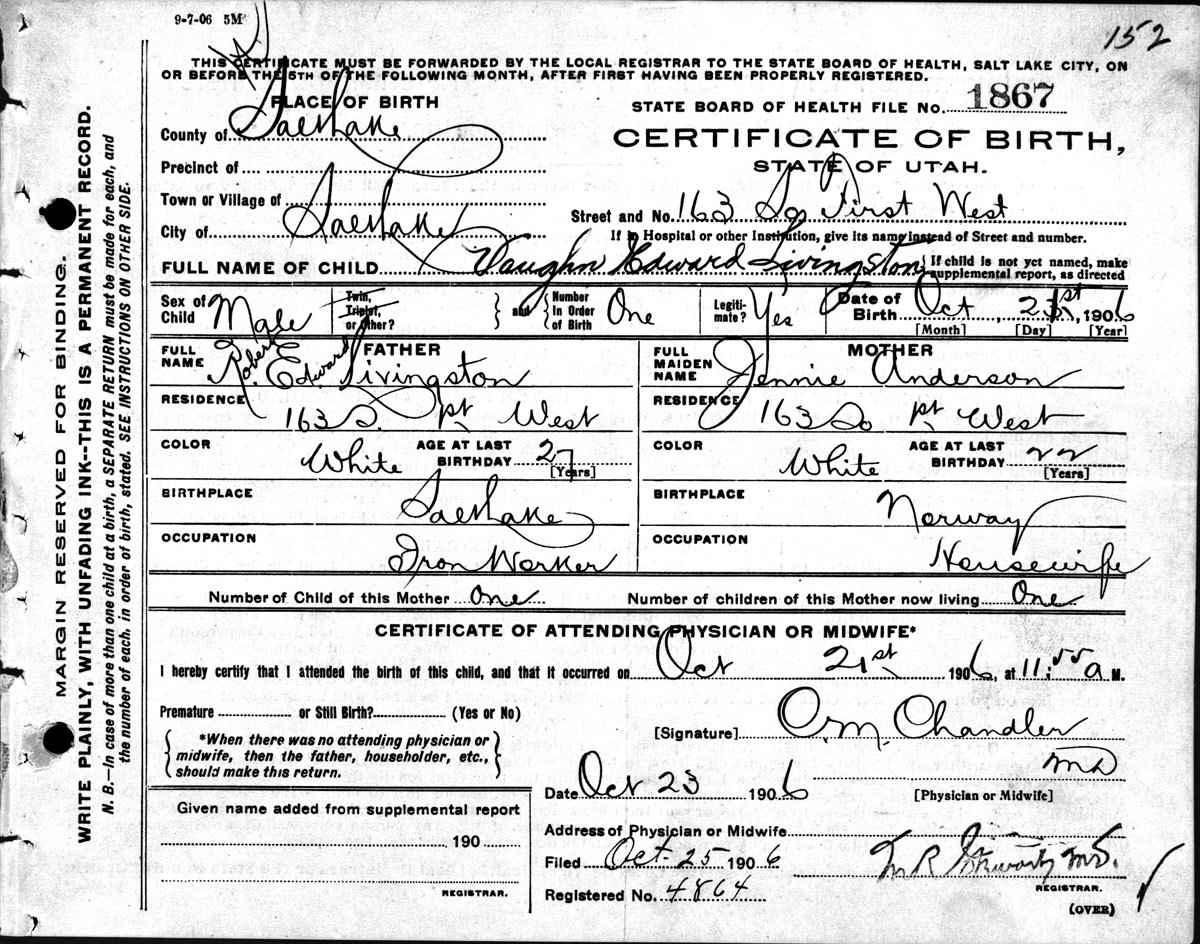 9-7-06 5M
152
THIS CERTIFICATE MUST BE FORWARDED BY THE LOCAL REGISTRAR TO THE STATE BOARD OF HEALTH, SALT LAKE CITY, ON
OR BEFORE THE 5TH OF THE FOLLOWING MONTH, AFTER FIRST HAVING BEEN PROPERLY REGISTERED.
MARGIN RESERVED FOR BINDING.
WRITE PLAINLY, WITH UNFADING INK--THIS IS A PERMANENT RECORD.
N. B.—In case of more than one child at a birth, a SEPARATE RETURN must be made for each, and
the number of each, in order of birth, stated. SEE INSTRUCTIONS ON OTHER SIDE.
PLACE OF BIRTH
County of Salt Lake
Precinct of
Town or Village of
City of Salt Lake
STATE BOARD OF HEALTH FILE No. 1867
CERTIFICATE OF BIRTH,
STATE OF UTAH.
Street and No. 163 So First West
If in Hospital or other Institution, give its name instead of Street and number.
FULL NAME OF CHILD Vaughn Edward Livingston
If child is not yet named, make
supplemental report, as directed
Sex of Child Male
Twin, Triplet, or other?
and
Number In Order of Birth One
Legiti-mate? Yes
Date of Birth Oct 21st, 1906
[Month] [Day] [Year]
FATHER
FULL NAME Robert R. Edward Livingston
RESIDENCE 163 S. 1st West
COLOR White AGE AT LAST BIRTHDAY 27 [Years]
BIRTHPLACE Salt Lake
OCCUPATION Iron Worker
MOTHER
FULL MAIDEN NAME Jennie Anderson
RESIDENCE 163 So 1st West
COLOR White AGE AT LAST BIRTHDAY 22 [Years]
BIRTHPLACE Norway
OCCUPATION Housewife
Number of Child of this Mother One Number of children of this Mother now living One
CERTIFICATE OF ATTENDING PHYSICIAN OR MIDWIFE*
I hereby certify that I attended the birth of this child, and that it occurred on Oct 21st 1906, at 11:55 a M.
Premature or Still Birth? (Yes or No)
*When there was no attending physician or
midwife, then the father, householder, etc.,
should make this return.
[Signature] O. M. Chandler
MD
[Physician or Midwife]
Date Oct 23 1906
Given name added from supplemental report
190
REGISTRAR.
Address of Physician or Midwife
Filed Oct. 25 1906
M R Stewart MD.
REGISTRAR.
Registered No. 4864
(OVER)